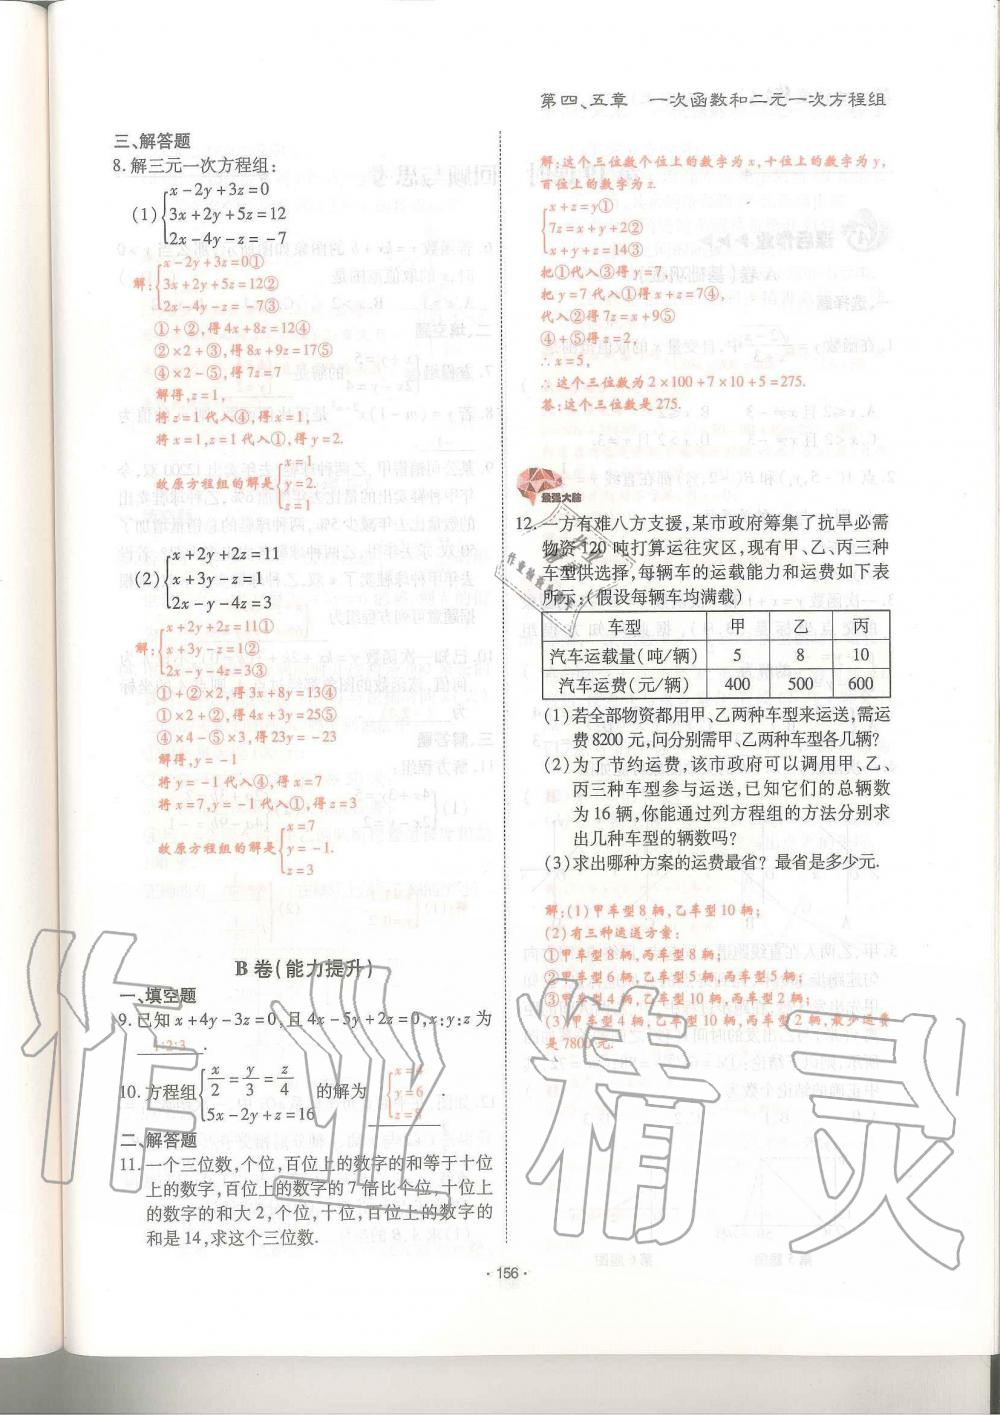 第四、五章　一次函数和二元一次方程组
三、解答题
8. 解三元一次方程组:
(1){x-2y+3z=0
3x+2y+5z=12
2x-4y-z=-7
解:{x-2y+3z=0①
3x+2y+5z=12②
2x-4y-z=-7③
①+②,得4x+8z=12④
②×2+③,得8x+9z=17⑤
④×2-⑤,得7z=7
解得,z=1,
将z=1代入④,得x=1,
将x=1,z=1代入①,得y=2.
故原方程组的解是{x=1
y=2.
z=1
(2){x+2y+2z=11
x+3y-z=1
2x-y-4z=3
解:{x+2y+2z=11①
x+3y-z=1②
2x-y-4z=3③
①+②×2,得3x+8y=13④
①×2+②,得3x+4y=25⑤
④×4-⑤×3,得23y=-23
解得,y=-1
将y=-1代入④,得x=7
将x=7,y=-1代入①,得z=3
故原方程组的解是{x=7
y=-1.
z=3
B卷(能力提升)
一、填空题
9. 已知x+4y-3z=0,且4x-5y+2z=0,x:y:z为
1:2:3.
10. 方程组{x/2=y/3=z/4
5x-2y+z=16
的解为{x=4
y=6
z=8.
二、解答题
11. 一个三位数,个位,百位上的数字的和等于十位
上的数字,百位上的数字的7倍比个位,十位上
的数字的和大2,个位,十位,百位上的数字的
和是14,求这个三位数.
解:这个三位数个位上的数字为x,十位上的数字为y,
百位上的数字为z.
{x+z=y①
7z=x+y+2②
x+y+z=14③
把①代入③得y=7,
把y=7代入①得x+z=7④,
代入②得7z=x+9⑤
④+⑤得z=2,
∴x=5,
∴这个三位数为2×100+7×10+5=275.
答:这个三位数是275.
最强大脑
12. 一方有难八方支援,某市政府筹集了抗旱必需
物资120吨打算运往灾区,现有甲、乙、丙三种
车型供选择,每辆车的运载能力和运费如下表
所示:(假设每辆车均满载)
车型 甲 乙 丙
汽车运载量(吨/辆) 5 8 10
汽车运费(元/辆) 400 500 600
(1)若全部物资都用甲、乙两种车型来运送,需运
费8200元,问分别需甲、乙两种车型各几辆?
(2)为了节约运费,该市政府可以调用甲、乙、
丙三种车型参与运送,已知它们的总辆数
为16辆,你能通过列方程组的方法分别求
出几种车型的辆数吗?
(3)求出哪种方案的运费最省?最省是多少元.
解:(1)甲车型8辆,乙车型10辆;
(2)有三种运送方案:
①甲车型8辆,丙车型8辆;
②甲车型6辆,乙车型5辆,丙车型5辆;
③甲车型4辆,乙车型10辆,丙车型2辆;
(3)甲车型4辆,乙车型10辆,丙车型2辆,最少运费
是7800元.
作业精灵
·156·